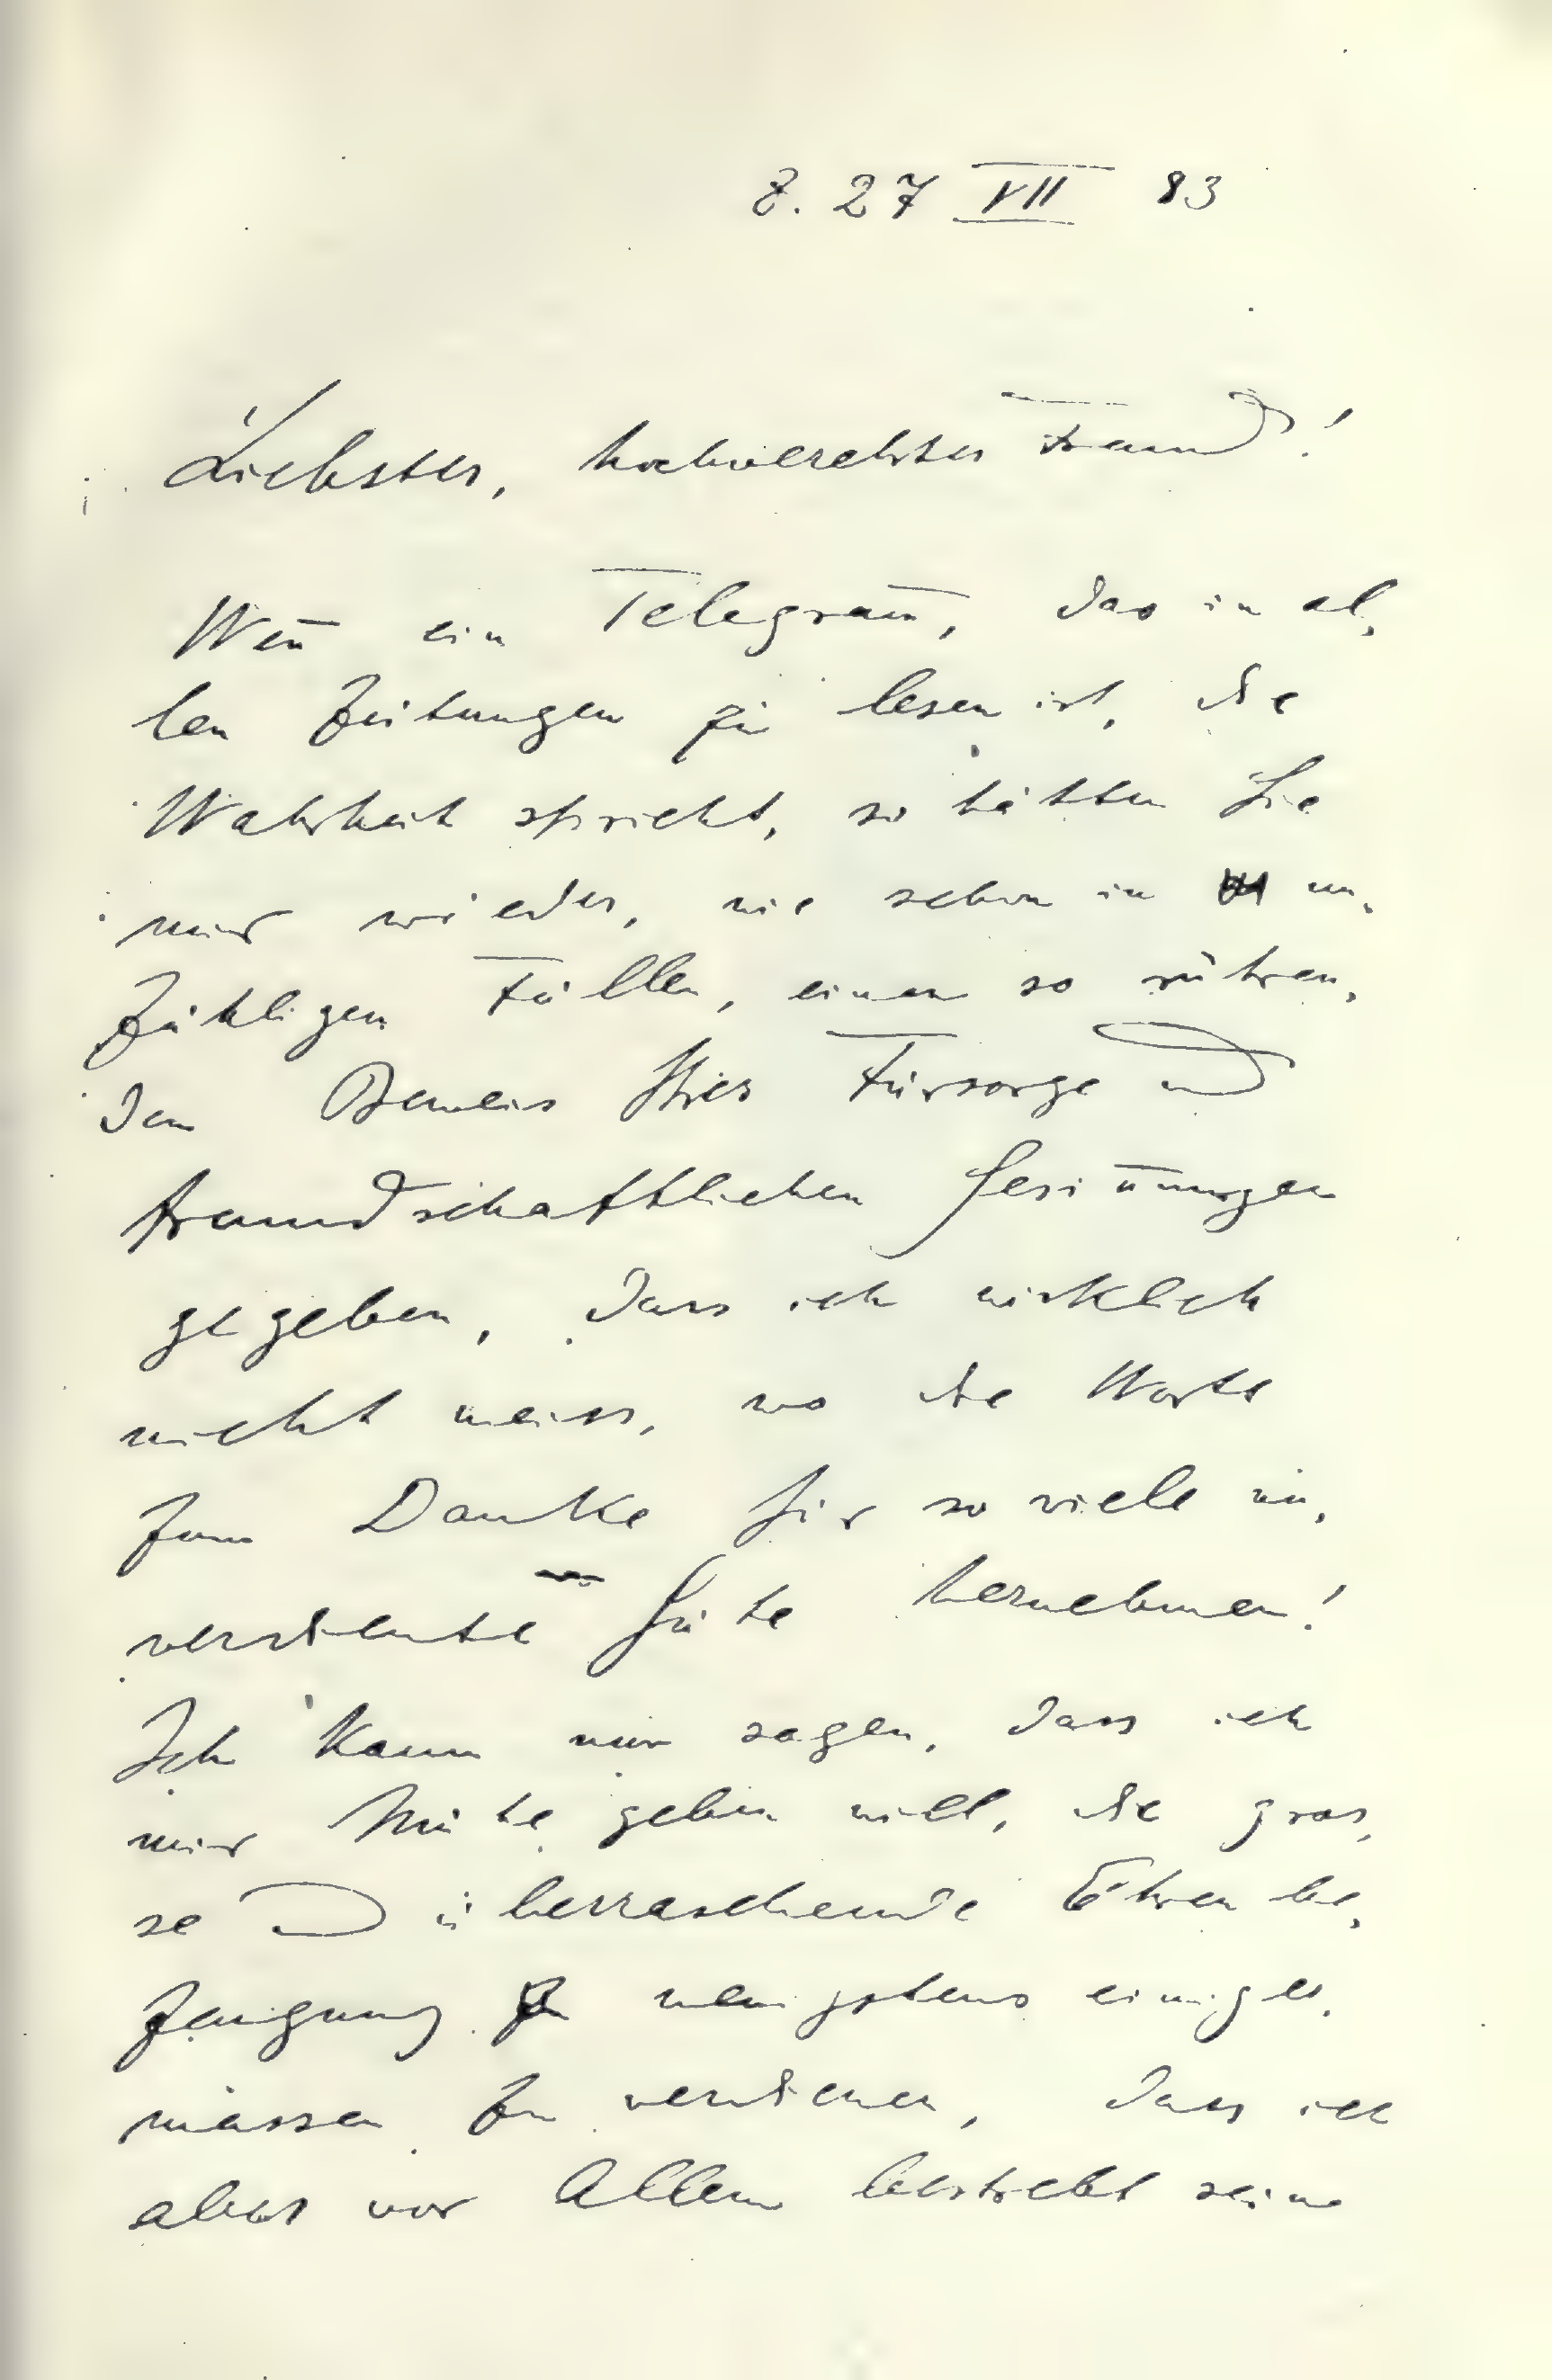 Z. 27 VII 83
Liebster, hochverehrter Freund!
Wen̄ ein Telegram̄, das in al,
len Zeitungen zu lesen ist, die
Wahrheit spricht, so hätten Sie
mir wieder, wie schon in un,
zähligen Fällen, einen so rühren,
den Beweis Ihrer Fürsorge und
freundschaftlichen Gesin̄ungen
gegeben, dass ich wirklich
nicht weiss, wo die Worte
zum Danke für so viele un,
verdiente Güte hernehmen!
Ich kann nur sagen, dass ich
mir Mühe geben will, die gros,
se und überraschende Ehrenbe,
zeugung wenigstens einiger,
massen zu verdienen, dass ich
aber vor Allem bestrebt sein